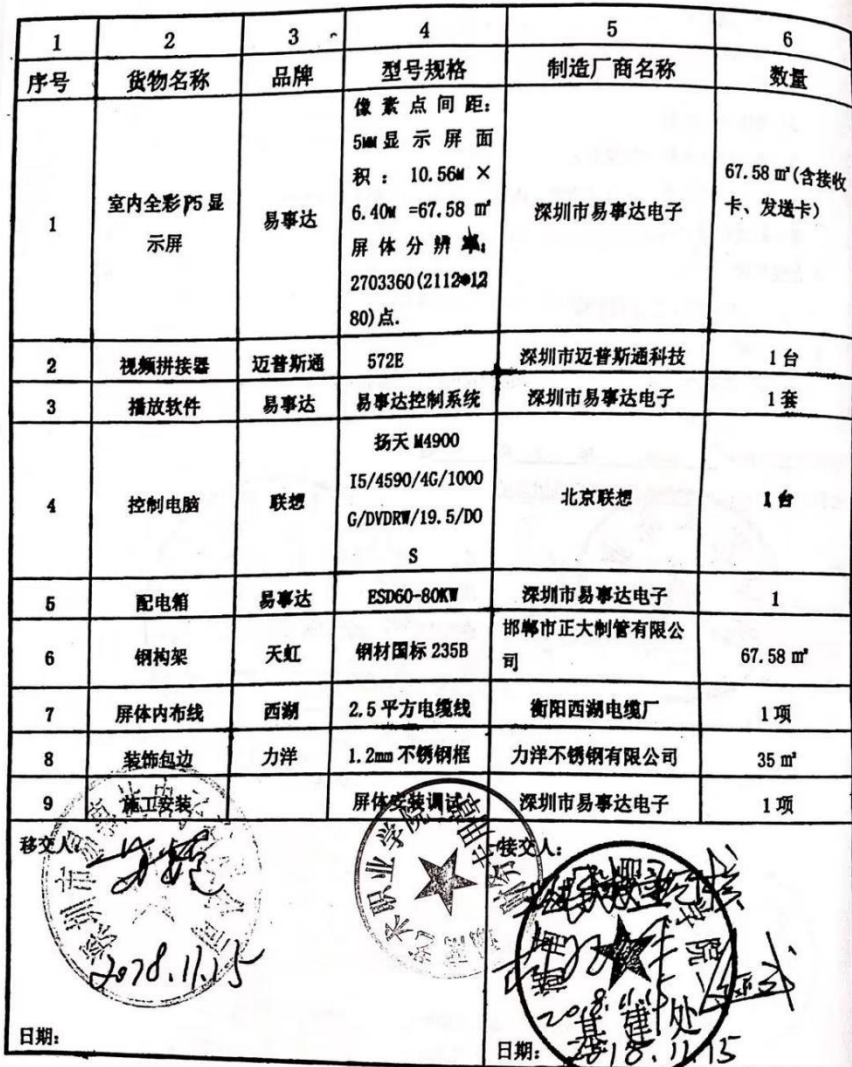 1 2 3 4 5 6
序号 货物名称 品牌 型号规格 制造厂商名称 数量
1 室内全彩P5显示屏 易事达 像素点间距：5MM显示屏面积：10.56M×6.40M=67.58㎡屏体分辨率：2703360(2112*1280)点. 深圳市易事达电子 67.58㎡(含接收卡、发送卡)
2 视频拼接器 迈普斯通 572E 深圳市迈普斯通科技 1台
3 播放软件 易事达 易事达控制系统 深圳市易事达电子 1套
4 控制电脑 联想 扬天M4900 I5/4590/4G/1000G/DVDRW/19.5/DOS 北京联想 1台
5 配电箱 易事达 ESD60-80KW 深圳市易事达电子 1
6 钢构架 天虹 钢材国标235B 邯郸市正大制管有限公司 67.58㎡
7 屏体内布线 西湖 2.5平方电缆线 衡阳西湖电缆厂 1项
8 装饰包边 力洋 1.2mm不锈钢框 力洋不锈钢有限公司 35㎡
9 施工安装 屏体安装调试 深圳市易事达电子 1项
移交人： 接交人：
2018.11.15
2018.11.15
基建处
日期： 日期：2018.11.15